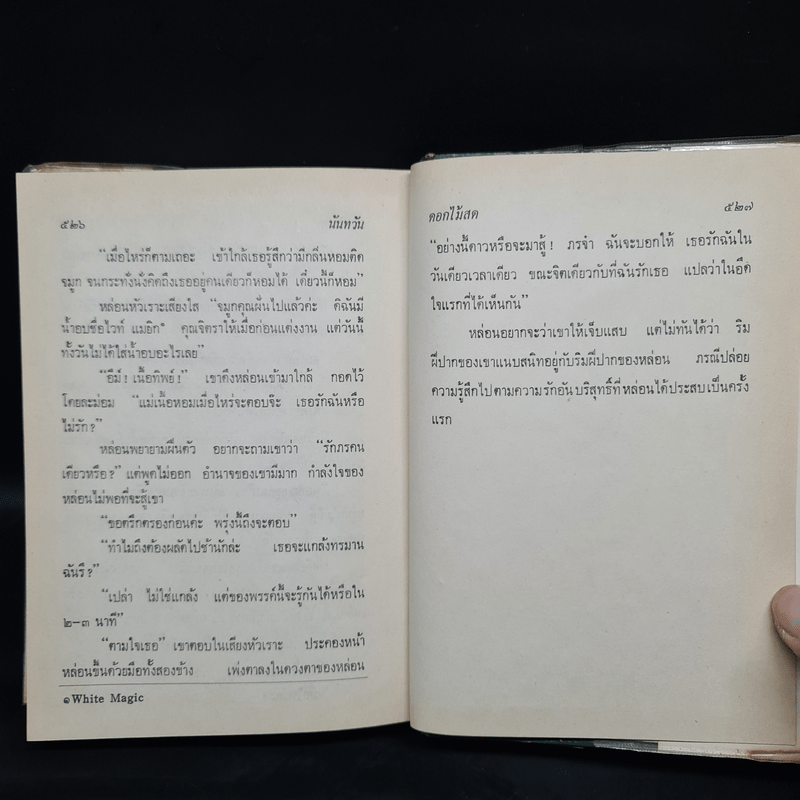 ๕๒๖ นันทวัน
“เมื่อไหร่ก็ตามเถอะ เข้าใกล้เธอรู้สึกว่ามีกลิ่นหอมติด
จมูก จนกระทั่งนั่งคิดถึงเธออยู่คนเดียวก็หอมได้ เดี๋ยวนี้ก็หอม”
หล่อนหัวเราะเสียงใส “จมูกคุณฝันไปแล้วค่ะ ดิฉันมี
น้ำอบชื่อไวท์ แมยิก๑ คุณจิตราให้เมื่อก่อนแต่งงาน แต่วันนี้
ทั้งวันไม่ได้ใส่น้ำอบอะไรเลย”
“อืม์! เนื้อทิพย์!” เขาดึงหล่อนเข้ามาใกล้ กอดไว้
โดยละม่อม “แม่เนื้อหอมเมื่อไหร่จะตอบจ๊ะ เธอรักฉันหรือ
ไม่รัก?”
หล่อนพยายามฝืนตัว อยากจะถามเขาว่า “รักภรคน
เดียวหรือ?” แต่พูดไม่ออก อำนาจของเขามีมาก กำลังใจของ
หล่อนไม่พอที่จะสู้เขา
“ขอตรึกตรองก่อนค่ะ พรุ่งนี้ถึงจะตอบ”
“ทำไมถึงต้องผลัดไปช้านักล่ะ เธอจะแกล้งทรมาน
ฉันรึ?”
“เปล่า ไม่ใช่แกล้ง แต่ของพรรค์นี้จะรู้กันได้หรือใน
๒–๓ นาที”
“ตามใจเธอ” เขาตอบในเสียงหัวเราะ ประคองหน้า
หล่อนขึ้นด้วยมือทั้งสองข้าง เพ่งตาลงในดวงตาของหล่อน
๑White Magic
ดอกไม้สด ๕๒๗
“อย่างนี้ดาวหรือจะมาสู้! ภรจ๋า ฉันจะบอกให้ เธอรักฉันใน
วันเดียวเวลาเดียว ขณะจิตเดียวกับที่ฉันรักเธอ แปลว่าในอึด
ใจแรกที่ได้เห็นกัน”
หล่อนอยากจะว่าเขาให้เจ็บแสบ แต่ไม่ทันได้ว่า ริม
ฝีปากของเขาแนบสนิทอยู่กับริมฝีปากของหล่อน ภรณีปล่อย
ความรู้สึกไปตามความรักอันบริสุทธิ์ที่หล่อนได้ประสบเป็นครั้ง
แรก